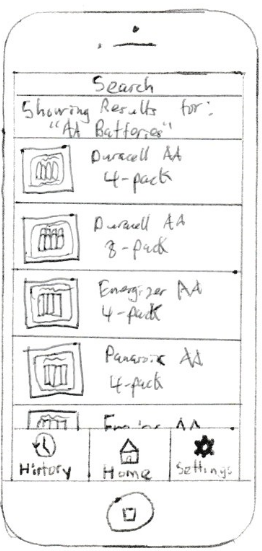 Search
Showing Results for:
"AA Batteries"
Duracell AA
4-pack
Duracell AA
8-pack
Energizer AA
4-pack
Panasonic AA
4-pack
AA
History
Home
Settings